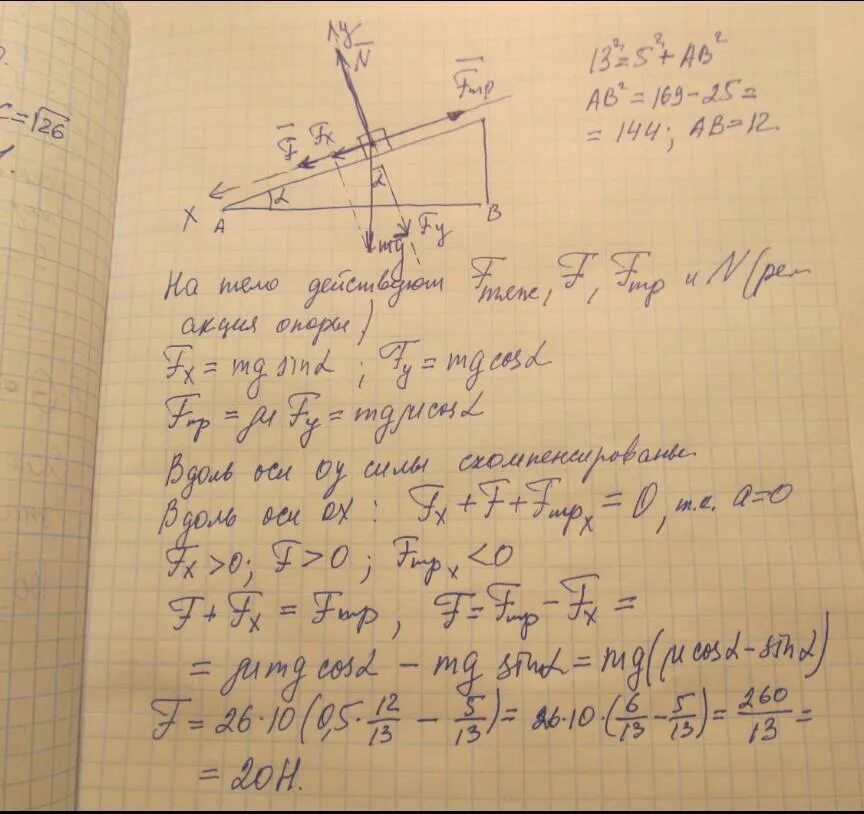 C=√26
y
N
Fтр
Fx
F
α
α
X
A
B
mg
Fy
13²=5²+AB²
AB²=169-25=
=144; AB=12
На тело действуют Fтяж, F, Fтр и N (ре
акция опоры)
Fx = mg sinα ; Fy = mg cosα
Fтр = μ Fy = mgμcosα
Вдоль оси oy силы скомпенсированы.
Вдоль оси OX : Fx + F + Fтрx = 0, т.к. a=0
Fx >0; F>0 ; Fтрx <0
F + Fx = Fтр, F = Fтр - Fx =
= μmg cosα - mg sinα = mg(μcosα - sinα)
F = 26·10(0,5·12/13 - 5/13) = 26·10·(6/13 - 5/13) = 260/13 =
= 20Н.